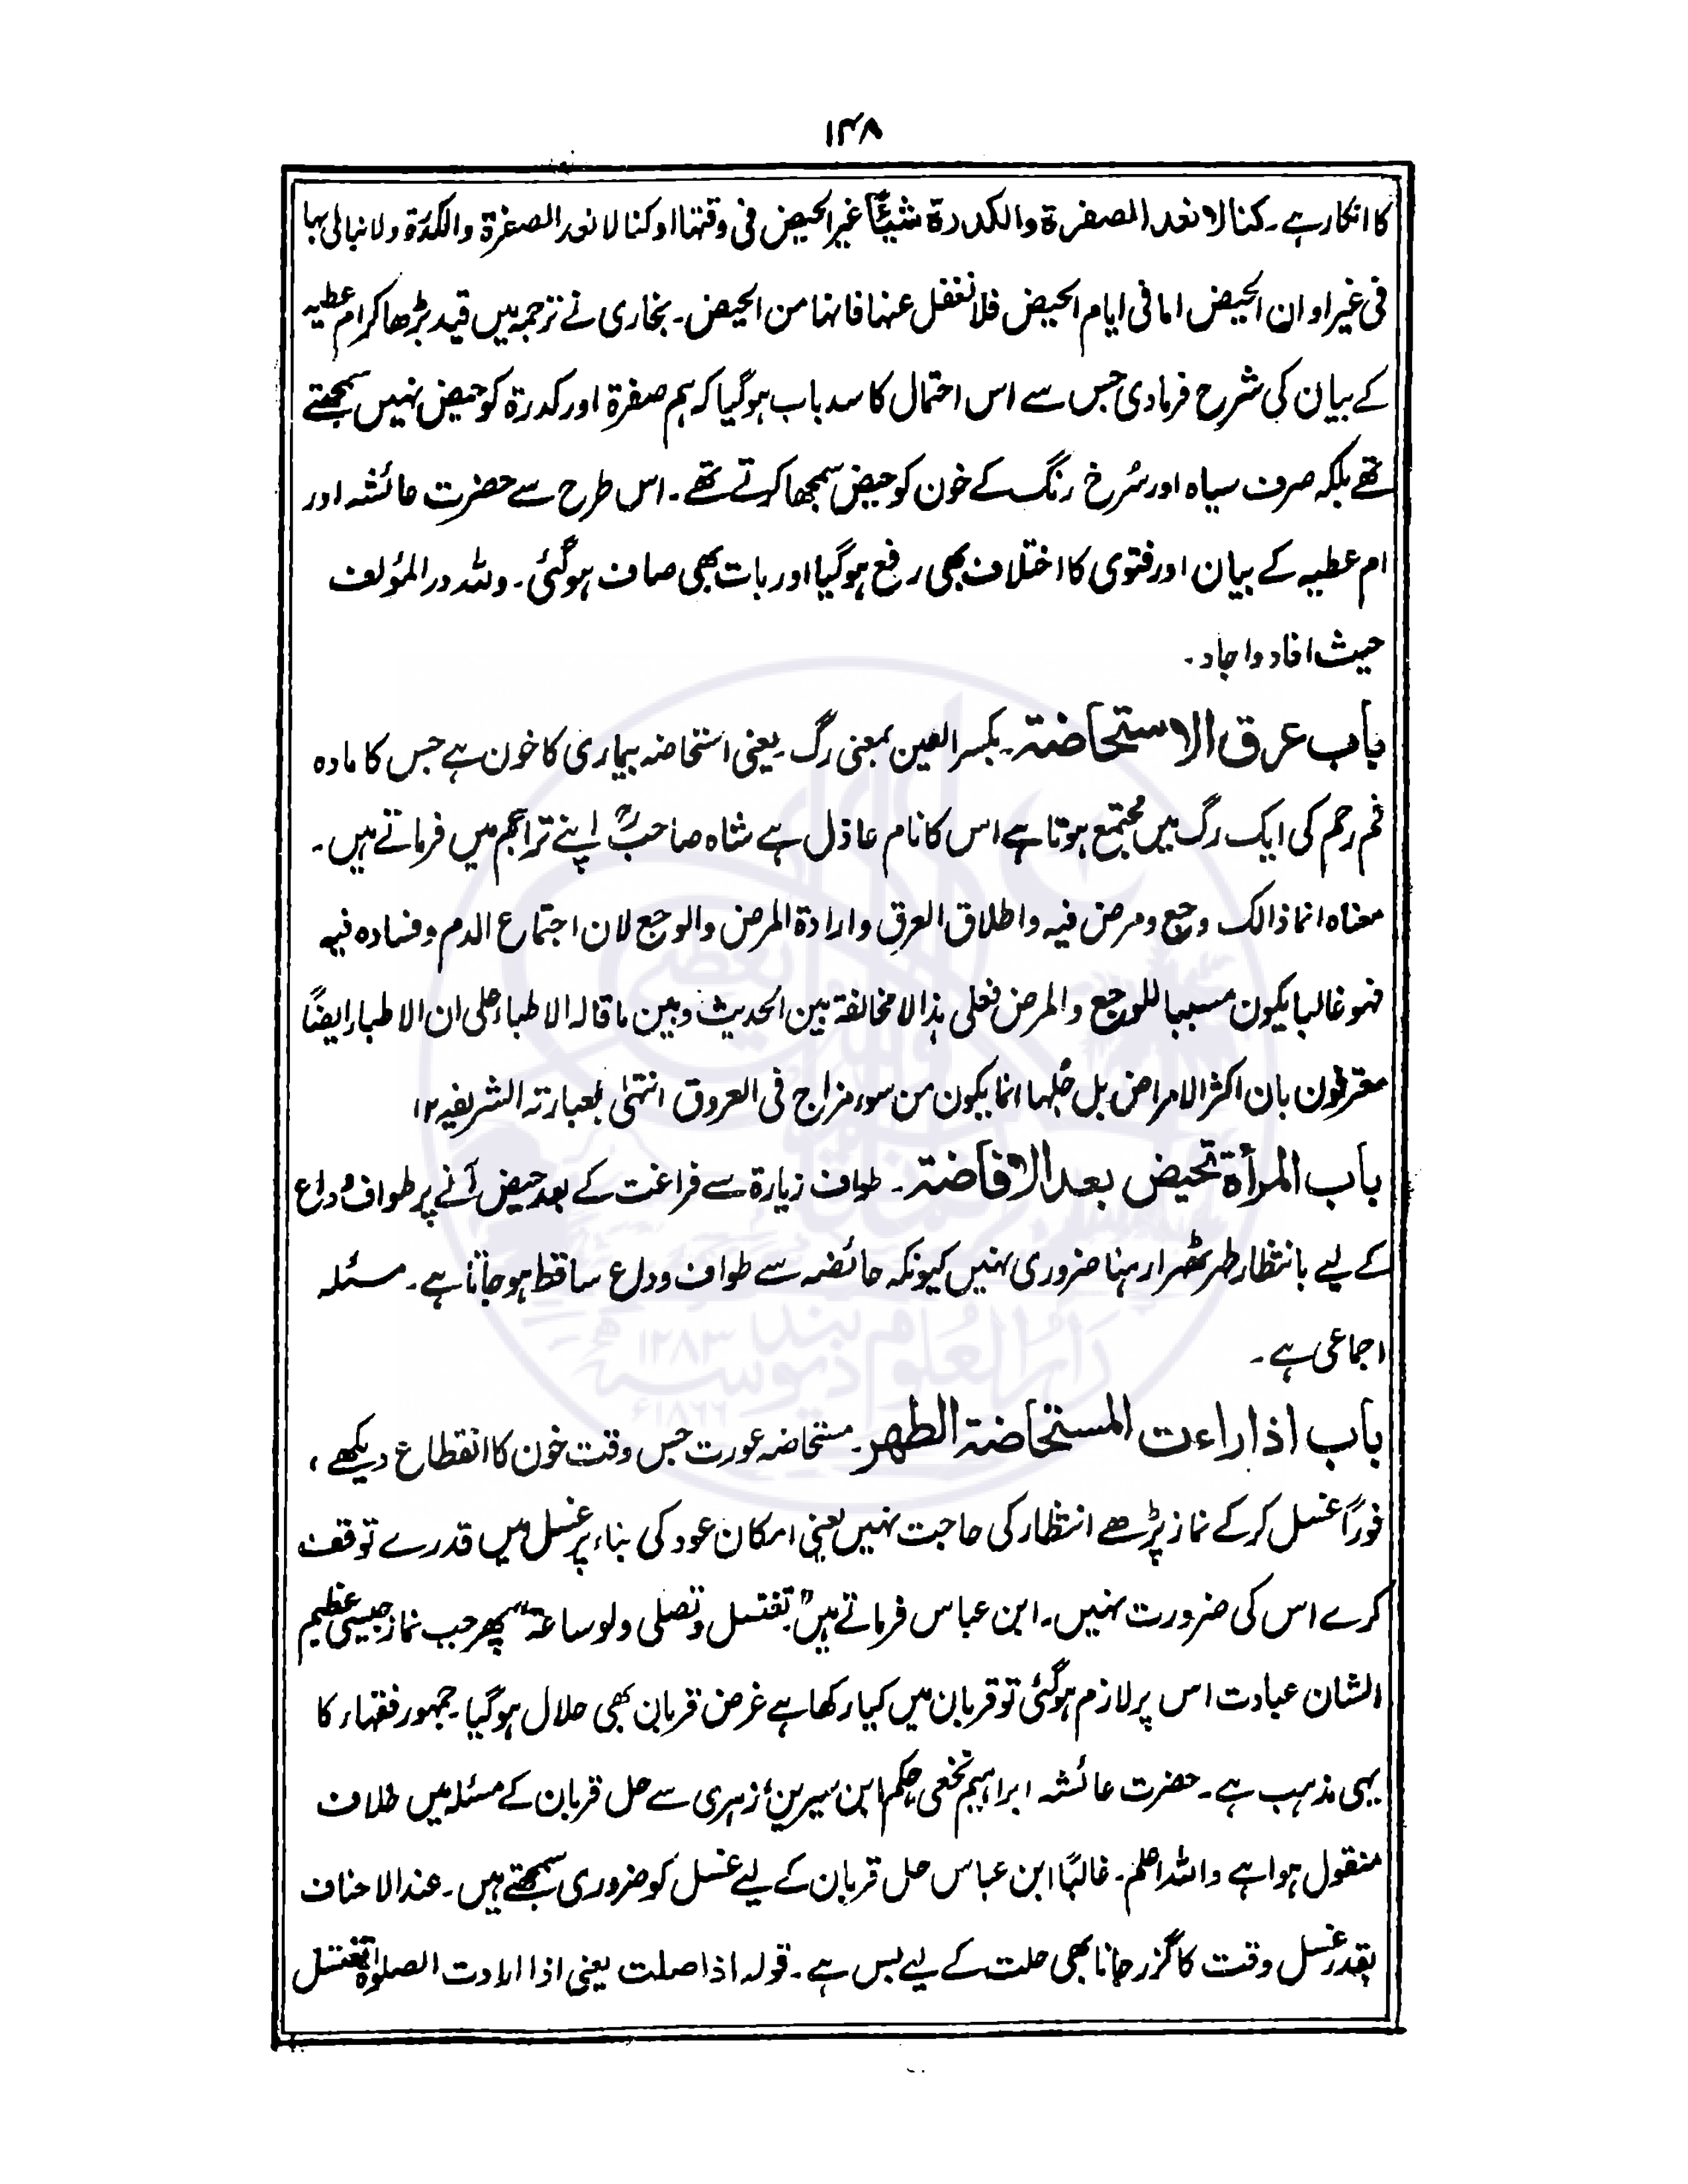 ۱۴۸
کا انکار ہے۔ کنا لا نعد الصفرۃ والکدرۃ شیئًا غیر الحیض فی وقتہا او کنا لا نعد الصفرۃ والکدرۃ ولا نبالی بہا
فی غیر اوان الحیض اما فی ایام الحیض فلا نغفل عنہا فانہا من الحیض۔ بخاری نے ترجمہ میں قید بڑھا کر ام عطیہ
کے بیان کی شرح فرمادی جس سے اس احتمال کا سد باب ہوگیا کہ ہم صفرۃ اور کدرۃ کو حیض نہیں سمجھتے
تھے بلکہ صرف سیاہ اور سُرخ رنگ کے خون کو حیض سمجھا کرتے تھے۔ اس طرح سے حضرت عائشہ اور
ام عطیہ کے بیان اور فتوی کا اختلاف بھی رفع ہوگیا اور بات بھی صاف ہوگئی۔ وللہ در المؤلف
حیث افاد واجاد۔
باب عرق الاستحاضۃ۔ بکسر العین بمعنی رگ۔ یعنی استحاضہ بیماری کا خون ہے جس کا مادہ
فم رحم کی ایک رگ میں مجتمع ہوتا ہے اس کا نام عاذل ہے شاہ صاحبؒ اپنے تراجم میں فرماتے ہیں۔
معناہ انما ذالک وجع ومرض فیہ واطلاق العرق وارادۃ المرض والوجع لان اجتماع الدم وفسادہ فیہ
فہو غالبا یکون مسببا للوجع والمرض فعلی ہذا لا مخالفۃ بین الحدیث وبین ما قالہ الاطباء علی ان الاطباء ایضًا
معترفون بان اکثر الامراض بل جُلہا انما یکون من سوء مزاج فی العروق انتہٰی بعبارتہ الشریفہ ۱۲
باب المرأۃ تحیض بعد الافاضۃ۔ طواف زیارۃ سے فراغت کے بعد حیض آنے پر طواف وداع
کے لیے بانتظار طہر ٹھہرا رہنا ضروری نہیں کیونکہ حائضہ سے طواف وداع ساقط ہوجاتا ہے۔ مسئلہ
اجماعی ہے۔
باب اذا راءت المستحاضۃ الطھر۔ مستحاضہ عورت جس وقت خون کا انقطاع دیکھے،
فورًا غسل کرکے نماز پڑھے انتظار کی حاجت نہیں یعنی امکان عود کی بناء پر غسل میں قدرے توقف
کرے اس کی ضرورت نہیں۔ ابن عباس فرماتے ہیں "تغتسل وتصلی ولو ساعۃ" پھر جب نماز جیسی عظیم
الشان عبادت اس پر لازم ہوگئی تو قربان میں کیا رکھا ہے غرض قربان بھی حلال ہوگیا۔ جمہور فقہاء کا
یہی مذہب ہے۔ حضرت عائشہ ابراہیم نخعی حکم ابن سیرین، زہری سے حل قربان کے مسئلہ میں خلاف
منقول ہوا ہے واللہ اعلم۔ غالبًا ابن عباس حل قربان کے لیے غسل کو ضروری سمجھتے ہیں۔ عند الاحناف
بقدر غسل وقت کا گزر جانا بھی حلت کے لیے بس ہے۔ قولہ اذا صلت یعنی اذا ارادت الصلوٰۃ تغتسل
دار العلوم دیوبند
۱۲۸۳ھ
۱۸۶۶ء